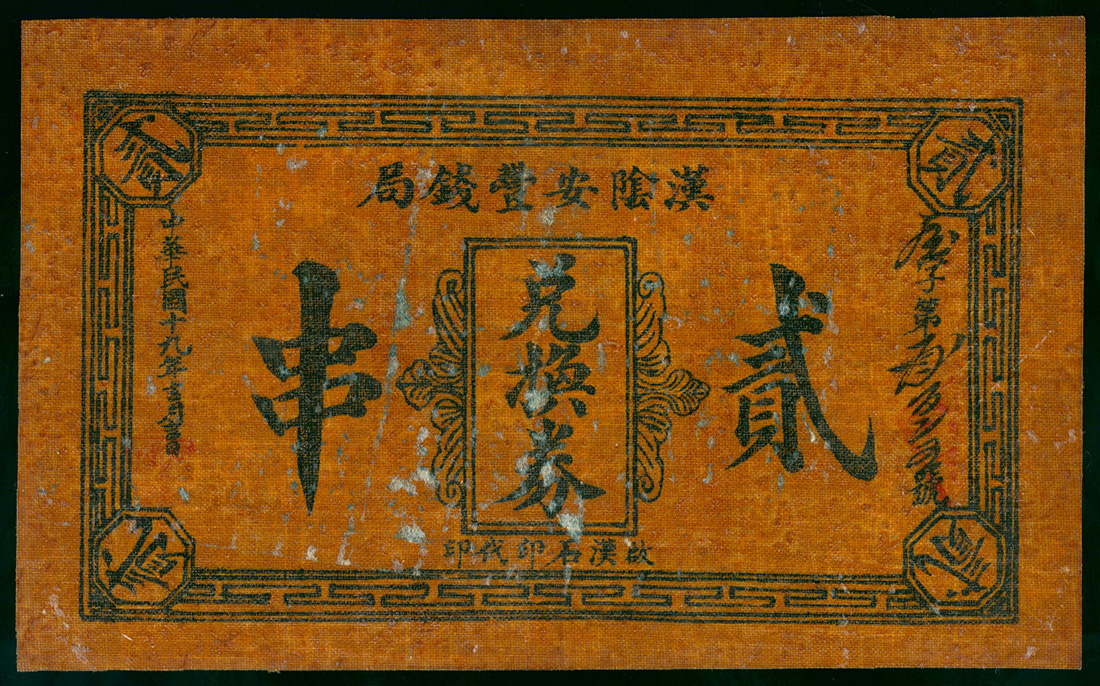 漢陰安豐錢局
貳
兌換券
串
啟漢石印代印
字第
號
中華民國十九年